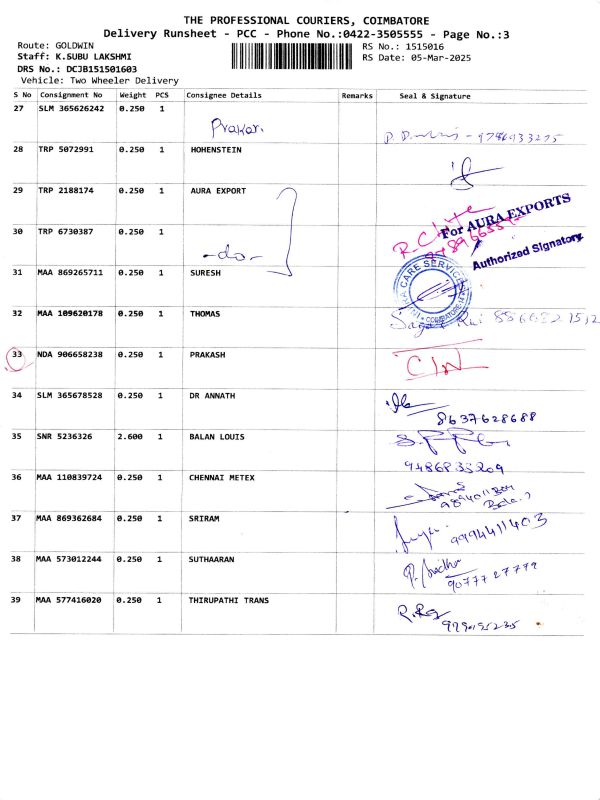 THE PROFESSIONAL COURIERS, COIMBATORE
Delivery Runsheet - PCC - Phone No.:0422-3505555 - Page No.:3
Route: GOLDWIN RS No.: 1515016
Staff: K.SUBU LAKSHMI RS Date: 05-Mar-2025
DRS No.: DCJB151501603
Vehicle: Two Wheeler Delivery
S No Consignment No Weight PCS Consignee Details Remarks Seal & Signature
27 SLM 365626242 0.250 1
Prakar.
28 TRP 5072991 0.250 1 HOHENSTEIN
29 TRP 2188174 0.250 1 AURA EXPORT
For AURA EXPORTS
30 TRP 6730387 0.250 1
-do-
Authorized Signatory
31 MAA 869265711 0.250 1 SURESH
CARE SERVICE
COIMBATORE
32 MAA 109620178 0.250 1 THOMAS
33 NDA 906658238 0.250 1 PRAKASH
34 SLM 365678528 0.250 1 DR ANNATH
8637628688
35 SNR 5236326 2.600 1 BALAN LOUIS
9486835209
36 MAA 110839724 0.250 1 CHENNAI METEX
37 MAA 869362684 0.250 1 SRIRAM
9994411403
38 MAA 573012244 0.250 1 SUTHAARAN
9077727779
39 MAA 577416020 0.250 1 THIRUPATHI TRANS